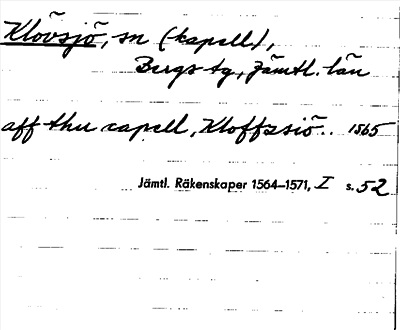 Klövsjö, sn (kapell),
Bergs tg, Jämtl. län
aff thu capell, Kloffzsiö.. 1565
Jämtl. Räkenskaper 1564–1571, I s. 52